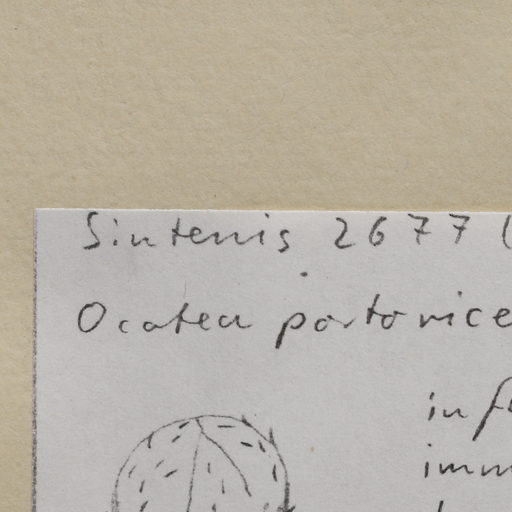 Sintenis 2677 (
Ocotea portorice
in f
imm